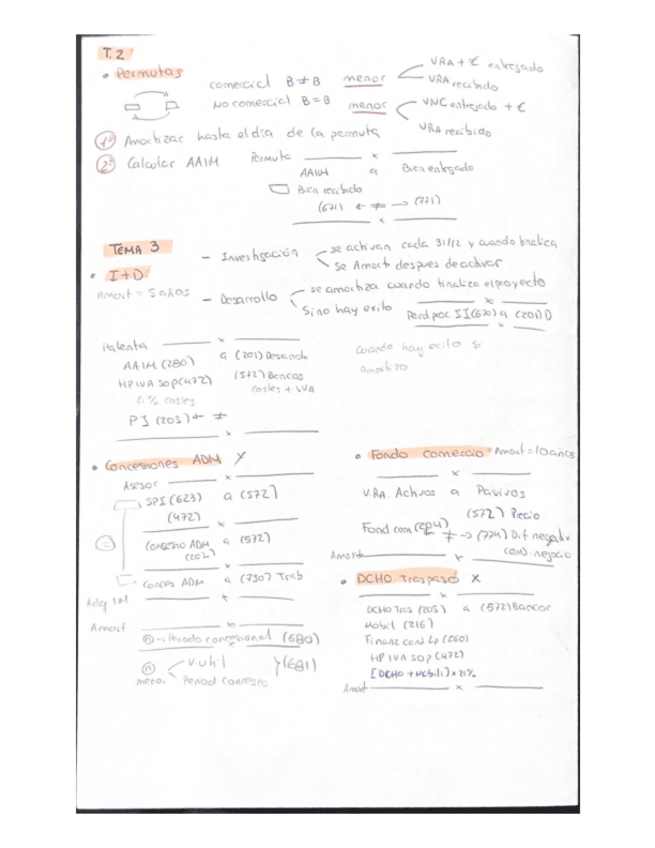 T.2
• Permutas
comercial B ≠ B menor VRA + € entregado
VRA recibido
No comercial B = B menor VNC entregado + €
VRA recibido
1º Amortizar hasta el día de la permuta
2º Calcular AAIM Permuta x
AAIM a Bien entregado
Bien recibido
(671) ← ≠ → (771)
x
TEMA 3
• I+D
Amort = 5 años
- Investigación se activan cada 31/12 y cuando finaliza
Se Amort despues de activar
- Desarrollo se amortiza cuando finaliza el proyecto
Si no hay exito x
Perd poc II (670) a (201) D
x
Cuando hay exito si
amortizo
Patente x
AAIM (280) a (201) Desarrollo
HP IVA SOP (472) (572) Bancos
21% costes costes + IVA
PI (203) ← ≠
x
• Concesiones ADM
Asesor x
SPI (623) a (572)
(472)
x
ADM a (572)
(202)
x
Conces ADM a (730) Trab
Adq IM x
Amort x
n → Periodo concesional (680)
x
n V.util y (681)
menor
• Fondo comercio Amort = 10 años
x
V.RA. Activos a Pasivos
(572) Precio
Fond com (204) ← ≠ → (774) Dif negativ
comb. negocio
Amort x
• DCHO Traspaso x
x
DCHO Tras (205) a (572) Bancos
Mobil (216)
HP IVA SOP (472)
[DCHO + Mobili] x 21%
Amort x